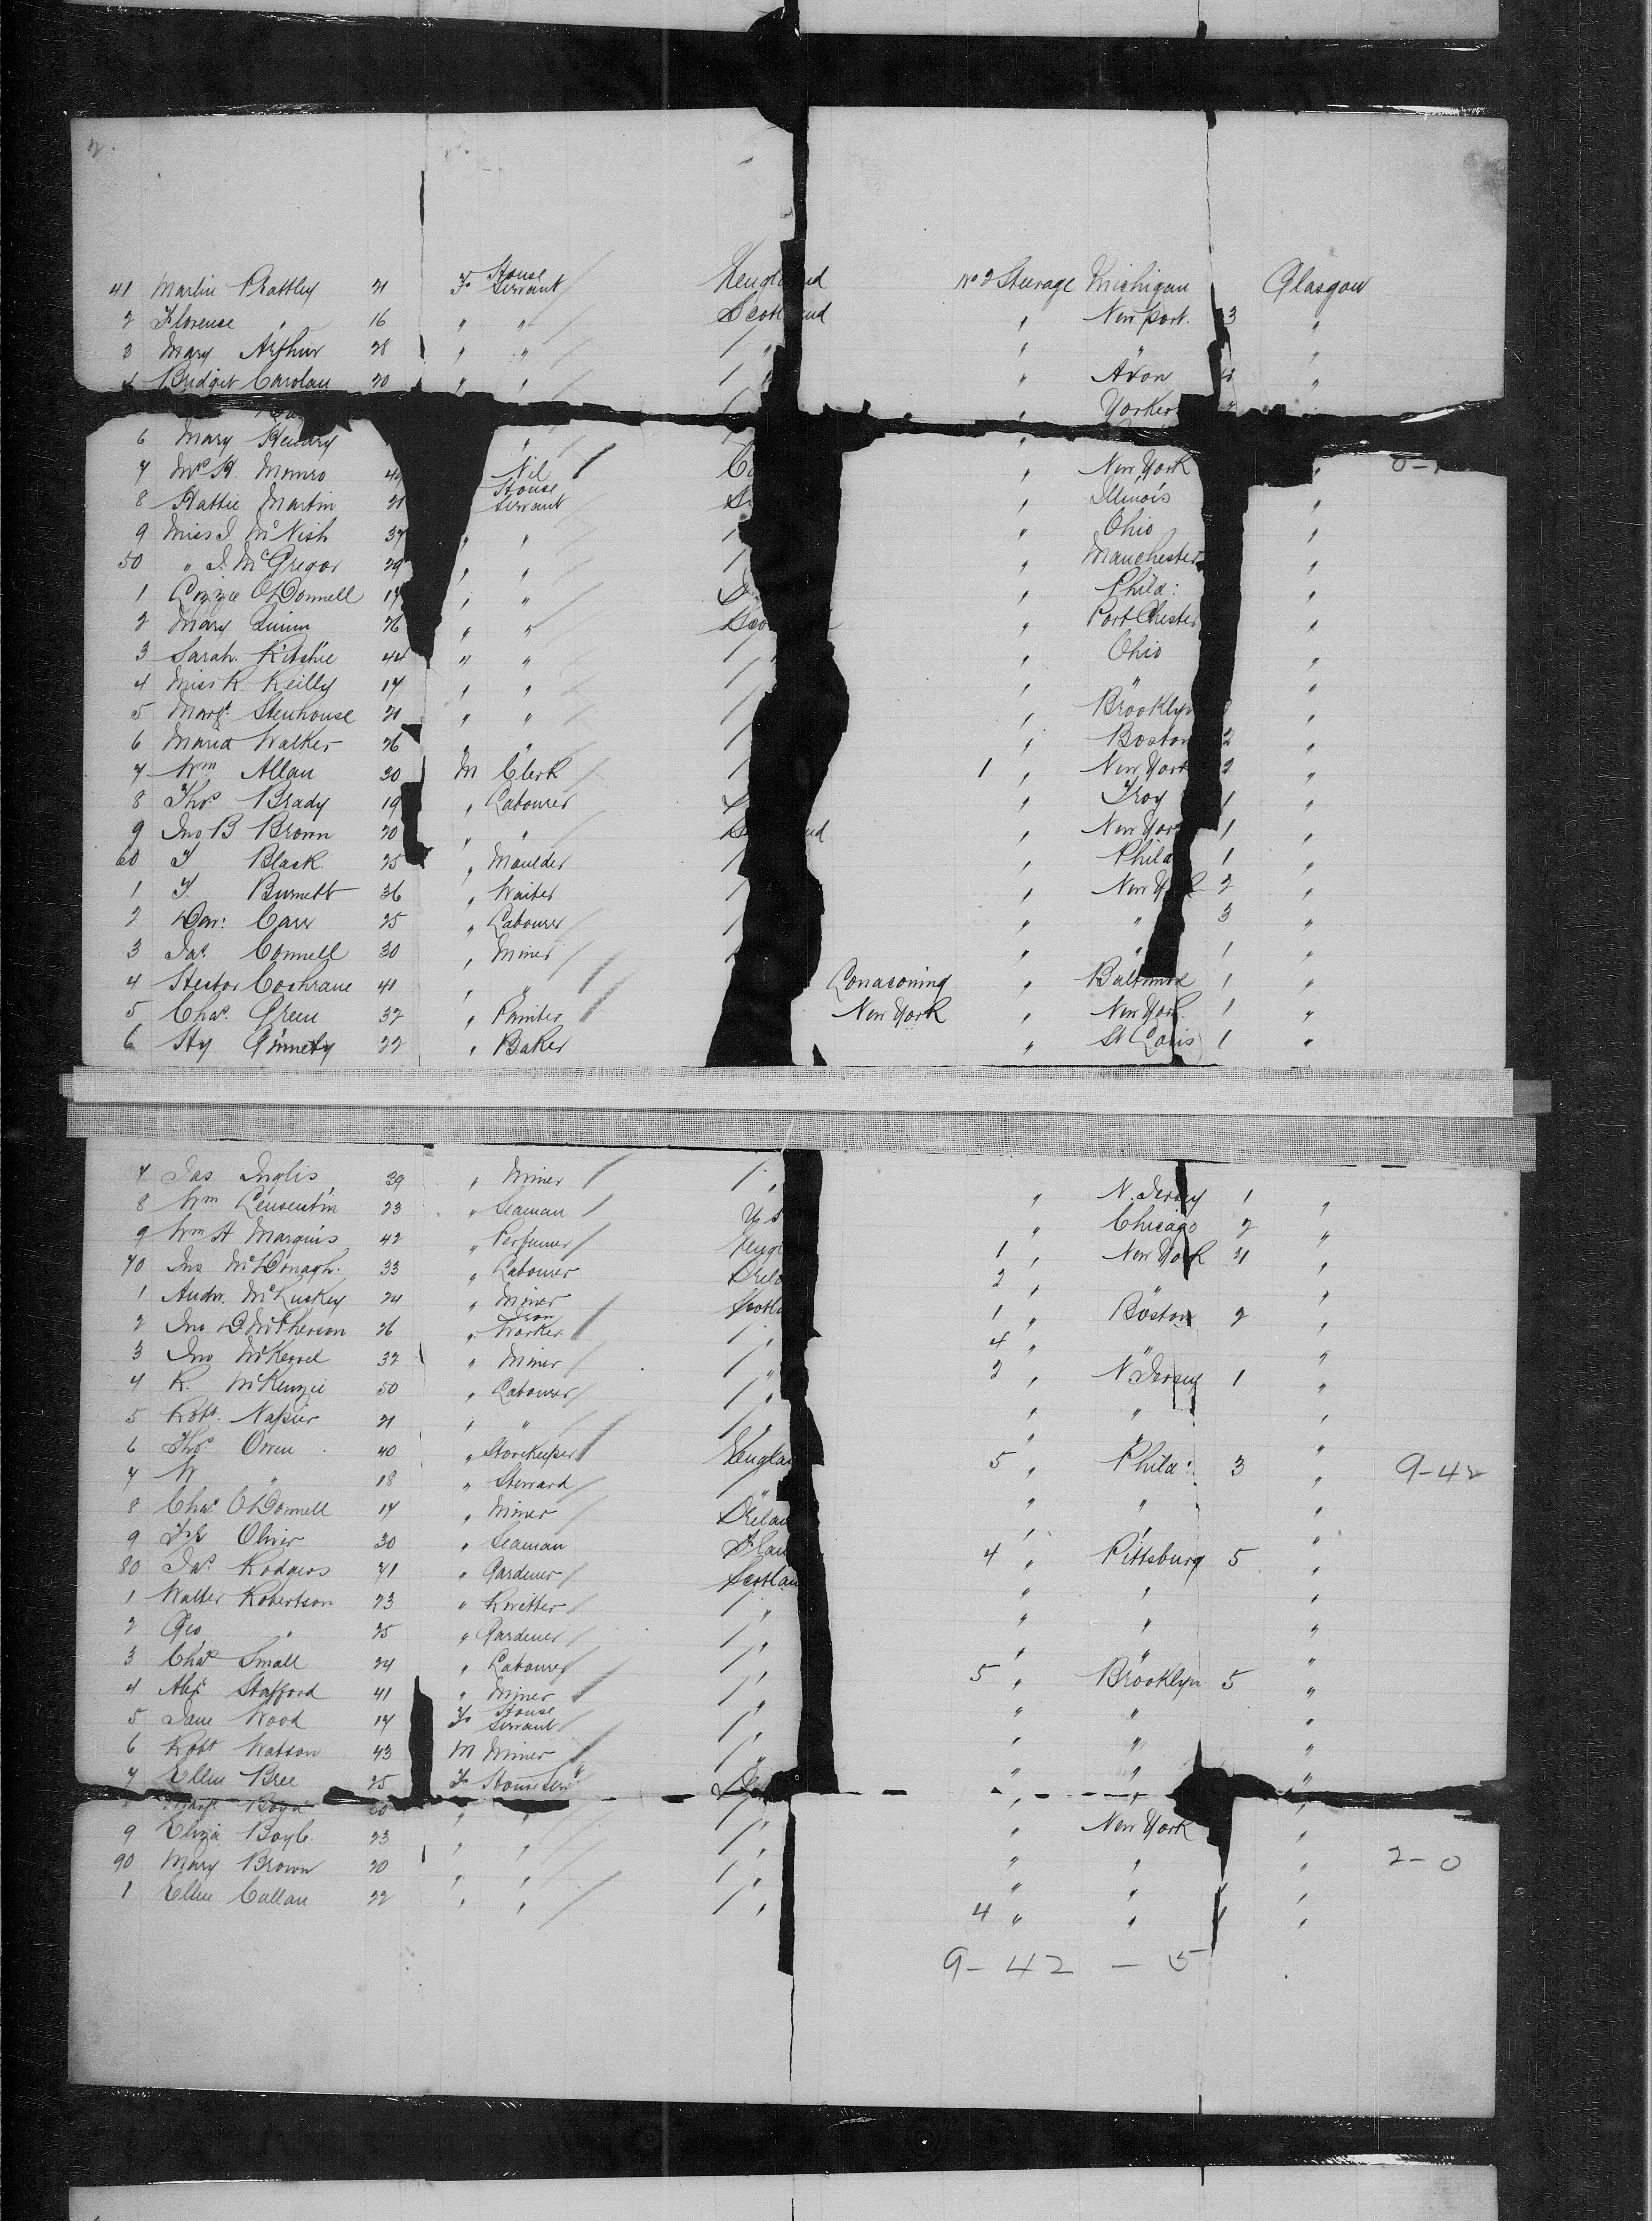 2.
41 Martin Prattley 21 F House Servant England No 2 Steerage Michigan Glasgow
2 Florence " 16 " " Scotland " New port. 3 "
3 Mary Arthur 28 " " " " " "
4 Bridget Carolan 20 " " " Avon "
" Yonkers
6 Mary Hendry "
7 Mrs H. Monro Nil " New York "
8 Hattie Martin 21 House Servant " Illinois "
9 Miss J. McNish 37 " " " Ohio "
50 " J. McGregor 29 " " " Manchester "
1 Lizzie O'Donnell 17 " " " Phila: "
2 Mary Quinn 26 " " Sco " Port Chester "
3 Sarah Ritchie 44 " " " " Ohio "
4 Miss K. Keilly 17 " " " " " "
5 Margt. Stenhouse 21 " " " Brooklyn "
6 Maria Walker 26 " " " Boston 2 "
7 Wm Allan 30 M Clerk 1 " New York 2 "
8 Thos Brady 19 " Labourer " Troy 1 "
9 Jno B Brown 20 " " " New York 1 "
60 J Black 25 " Moulder " Phila 1 "
1 J. Burnett 36 " Waiter " New York 2 "
2 Dan: Carr 25 " Labourer " " 3 "
3 Jas. Connell 30 " Miner " " 1 "
4 Hector Cochrane 41 " " Lonaconing " Baltimore 1 "
5 Chas. Green 32 " Painter New York " New York 1 "
6 Hy Ginnety 22 " Baker " St Louis 1 "
7 Jas Inglis 39 " Miner " " N. Jersey 1 "
8 Wm 23 " Seaman U S " Chicago 2 "
9 Wm H Marquis 42 " Perfumer Engl 1 " New York 4 "
70 Jno McDonagh. 33 " Labourer Irela 2 " " "
1 Andw. McLuskey 24 " Miner Scotla 1 " Boston 2 "
2 Jno D McPherson 26 " Iron Worker " 4 " " "
3 Jno McKerrel 32 " Miner " 2 " N Jersey 1 "
4 R. McKenzie 50 " Labourer " " " "
5 Robt. Napier 21 " " " " " "
6 Thos. Owen 40 " Storekeeper Englan 5 " Phila: 3 " 9-42
7 W " 18 " Steward " " " "
8 Chas O'Donnell 17 " Miner Irelan " " "
9 Oliver 30 " Seaman 4 " Pittsburg 5 "
80 Jas. Rodgers 71 " Gardener Scotlan " " "
1 Walter Robertson 23 " Rivetter " " " "
2 Geo " 25 " Gardener " " " "
3 Chas Small 24 " Labourer " 5 " Brooklyn 5 "
4 Alexr Stafford 41 " Miner " " " "
5 Jane Wood 17 F House Servant " " " "
6 Robt Watson 43 M Miner " " " "
7 Ellen Bree 25 F House Servt " " "
Margt. Boyd 20 " " " " New York "
9 Eliza Boyle. 23 " " " " " "
90 Mary Brown 20 " " " " " " 2-0
1 Ellen Cullan 22 " " " 4 " " "
9-42 - 5